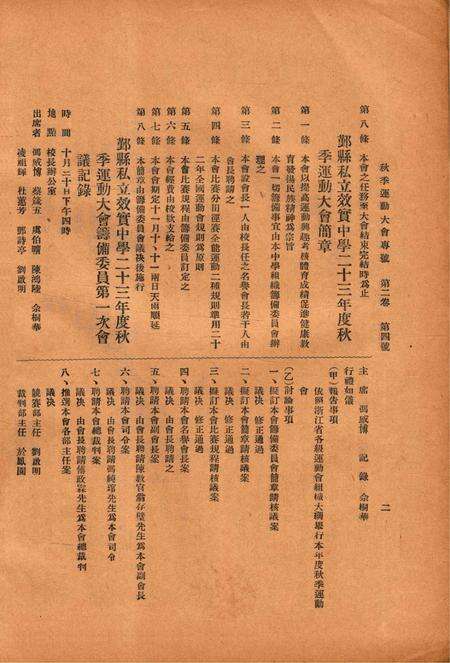 秋季運動大會專號　第二卷　第四號
二
第八條　本會之任務至大會結束完結時為止
鄞縣私立效實中學二十三年度秋
季運動大會簡章
第一條　本會以提高運動興趣考核體育成績促進健康教
育發揚民族精神為宗旨
第二條　本會一切籌備事宜由本中學組織籌備委員會辦
理之
第三條　本會設會長一人由校長任之名譽會長若干人由
會長聘請之
第四條　本會比賽分田徑賽全能運動二種規則準用二十
二年全國運動會規則為原則
第五條　本會比賽規程由籌備委員訂定之
第六條　本會經費由校款支給之
第七條　本會會期定十一月十、十一兩日天雨順延
第八條　本簡章由籌備委員會議決後施行
鄞縣私立效實中學二十三年度秋
季運動大會籌備委員第一次會
議記錄
時間　十月三十日下午四時
地點　校長辦公室
出席者　馮威博　蔡　五　虞伯曠　陳鴻陵　余桐華
凌祖輝　杜蕙芳　郭詩亭　劉啟明
主席　馮威博　記錄　余桐華
行禮如儀
(甲)報告事項
依照浙江省各級運動會組織大綱舉行本年度秋季運動
會
(乙)討論事項
一、擬訂本會籌備委員會簡章請核議案
議決　修正通過
二、擬訂本會簡章請核議案
議決　修正通過
三、擬訂本會比賽規程請核議案
議決　修正通過
四、聘請本會名譽會長案
議決　由會長聘請之
五、聘請本會副會長案
議決　由會長聘請陳教官　存璧先生為本會副會長
六、聘請本會司令案
議決　由會長聘請馮　琯先生為本會司令
七、聘請本會總裁判案
議決　由會長聘請傅政　先生為本會總裁判
八、推選本會各部主任案
議決
競賽部主任　劉啟明
裁判部主任　於鳳園